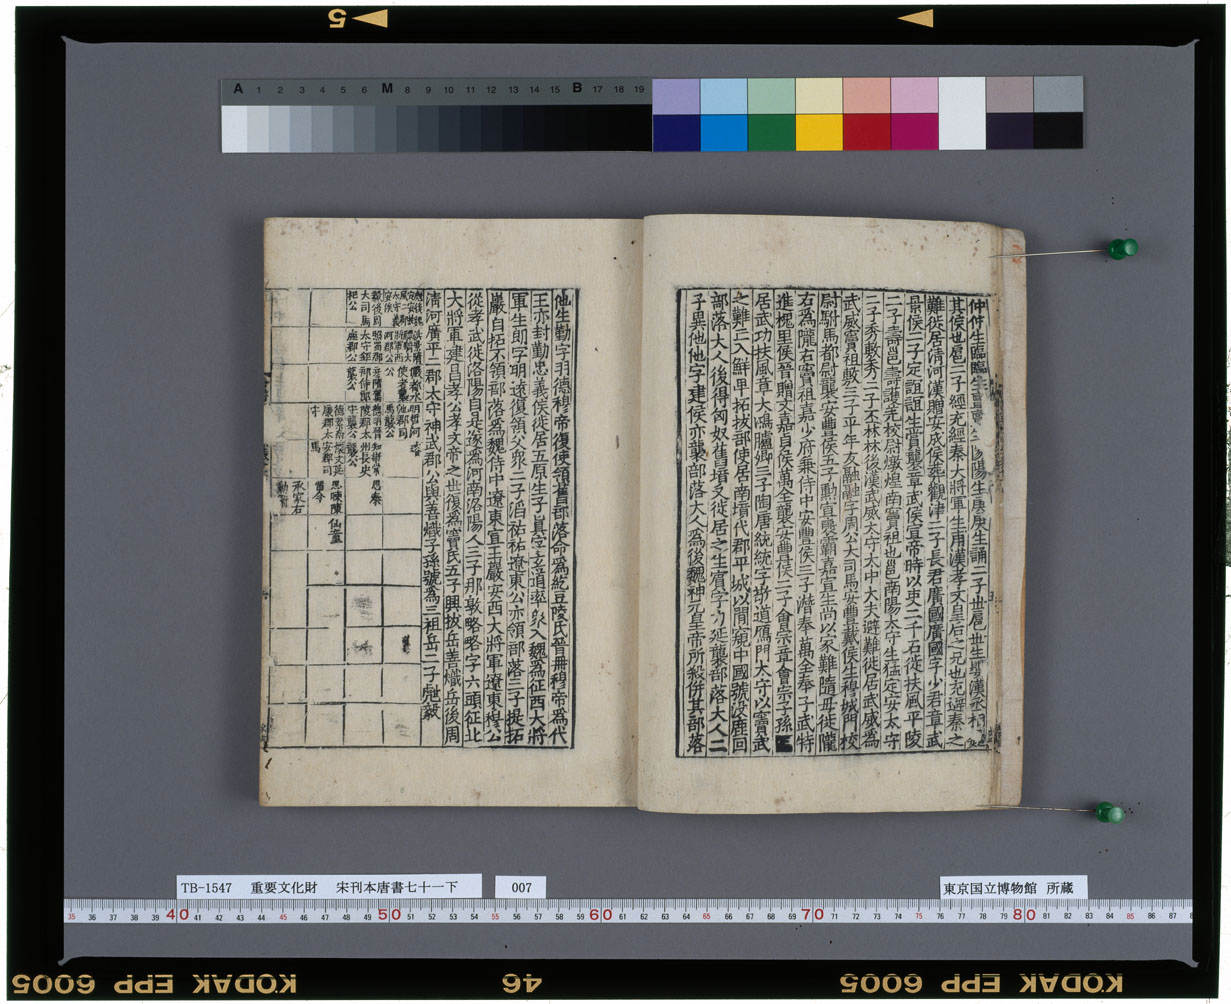 5
A 1 2 3 4 5 6 M 8 9 10 11 12 13 14 15 B 17 18 19
仲仲生臨臨生亶亶生陽陽生庚庚生誦二子世扈世生嬰漢丞相魏
其侯也扈二子經充經秦大將軍生甫漢孝文皇后之兄也充避秦之
難徙居清河漢贈安成侯葬觀津二子長君廣國廣國字少君章武
景侯二子定誼誼生賞襲章武侯宣帝時以吏二千石徙扶風平陵
二子壽邕壽護羌校尉燉煌南竇祖也邕南陽太守生猛定安太守
二子秀敷秀二子丕林林後漢武威太守太中大夫避難徙居武威為
武威竇祖敷三子平年友融融字周公大司馬安豐戴侯生穆城門校
尉駙馬都尉襲安豐侯五子勳宣褒霸嘉宣生尚以家難隨母徙隴
右為隴右竇祖嘉少府兼侍中安豐侯三子潛奉萬全奉子武特
進槐里侯晉贈文嘉自侯萬全襲安豐侯二子會宗章會宗子孫
居武功扶風章大鴻臚卿三子陶唐統統字敬道鴈門太守以竇武
之難亡入鮮卑拓拔部使居南境代郡平城以間窺中國號沒鹿回
部落大人後得匈奴舊境又徙居之生賓字力延襲部落大人二
子異他他字建侯亦襲部落大人為後魏神元皇帝所殺併其部落
他生勤字羽德穆帝復使領舊部落命為紇豆陵氏晉冊穆帝為代
王亦封勤忠義侯徙居五原生子真字玄道率眾入魏為征西大將
軍生朗字明遠復領父眾二子滔祐祐遼東公亦領部落三子提拓
巖自拓不領部落為魏侍中遼東宣王巖安西大將軍遼東穆公
從孝武徙洛陽自是遂為河南洛陽人三子那敦略略字六頭征北
大將軍建昌孝公孝文帝之世復為竇氏五子興拔岳善熾岳後周
清河廣平二郡太守神武郡公與善熾子孫號為三祖岳二子甝毅
大司馬
杞公
思泰
承家右
TB-1547 重要文化財 宋刊本唐書七十一下
007
東京国立博物館 所蔵
35 36 37 38 39 40 41 42 43 44 45 46 47 48 49 50 51 52 53 54 55 56 57 58 59 60 61 62 63 64 65 66 67 68 69 70 71 72 73 74 75 76 77 78 79 80 81 82 83 84 85 86 87
KODAK EPP 6005
46
KODAK EPP 6005